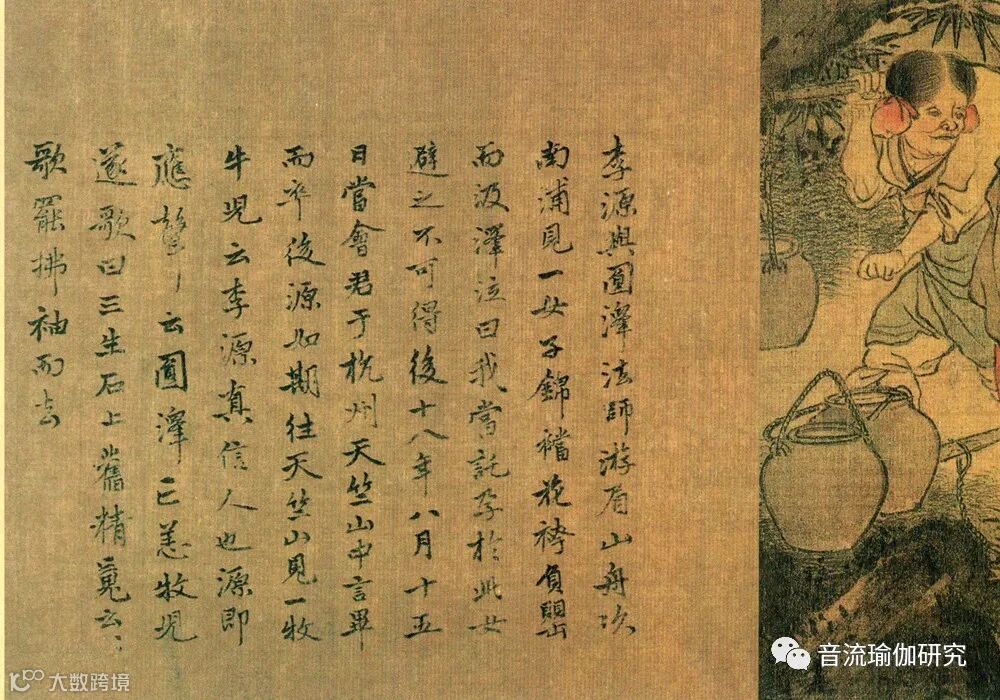 李源與圓澤法師游眉山舟次
南浦見一女子錦襠花袴負罌
而汲澤泣曰我當託孕於此女
避之不可得後十八年八月十五
日當會君于杭州天竺山中言畢
而卒後源如期往天竺山見一牧
牛児云李源真信人也源即
應聲云圓澤已恙牧児
遂歌曰三生石上舊精䰟云〻
歌罷拂袖而去
音流瑜伽研究
大数跨境